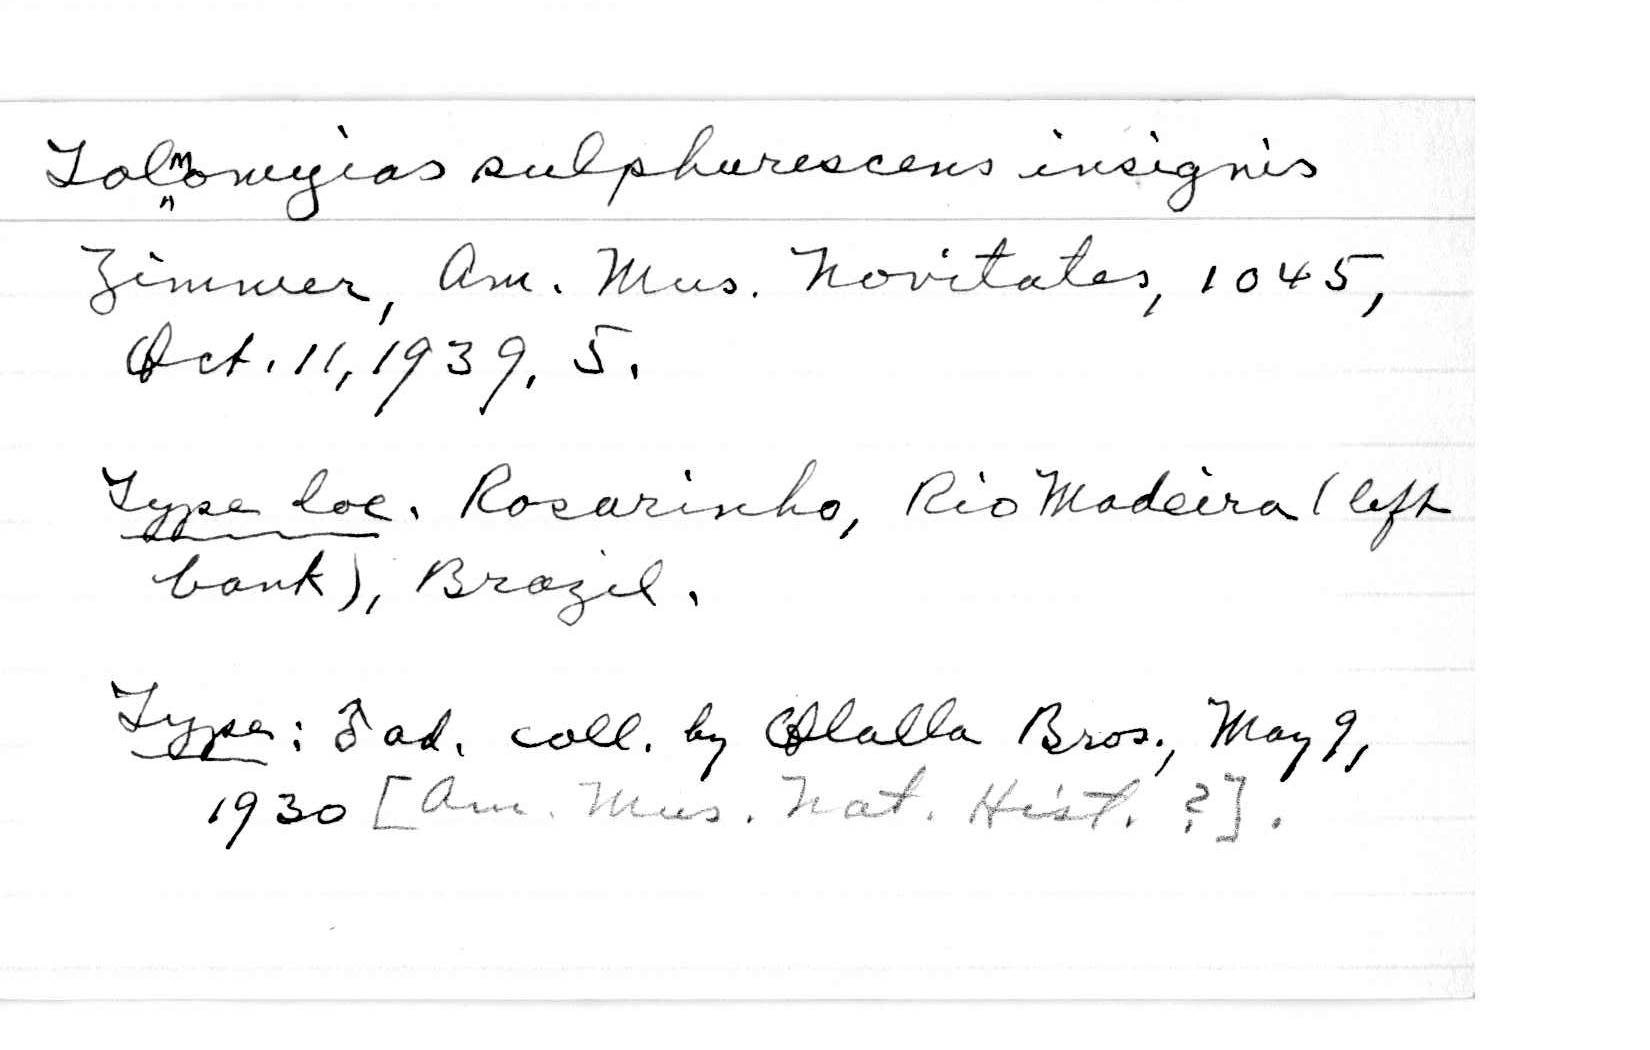 Tolmomyias sulphurescens insignis
Zimmer, Am. Mus. Novitates, 1045,
Oct. 11, 1939, 5.
Type loc. Rosarinho, Rio Madeira (left
bank), Brazil.
Type: ♂ ad. coll. by Olalla Bros., May 9,
1930 [Am. Mus. Nat. Hist. ?].